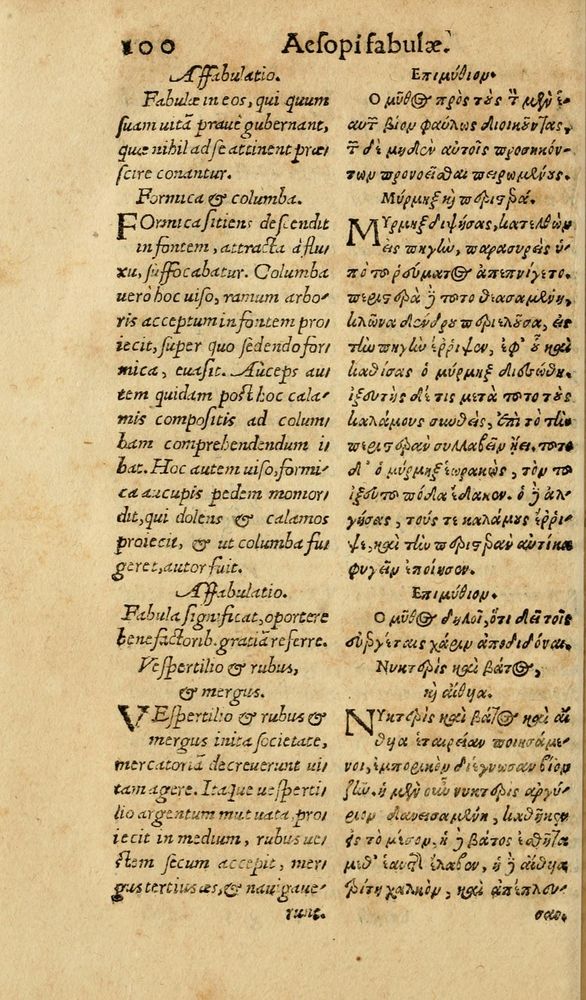 100 Aesopi fabulæ.
Affabulatio.
Fabulæ in eos, qui quum
suam uitā prauè gubernant,
quæ nihil ad se attinent præ
scire conantur.
Formica & columba.
FOrmica sitiens descendit
in fontem, attracta à flu-
xu, suffocabatur. Columba
uerò hoc uiso, ramum arbo-
ris acceptum in fontem pro
iecit, super quo sedendo for-
mica, euasit. Auceps au
tem quidam post hoc cala-
mis compositis ad colum-
bam comprehendendum i
bat. Hoc autem uiso, formi-
ca aucupis pedem momor
dit, qui dolens & calamos
proiecit, & ut columba fu
geret, autor fuit.
Affabulatio.
Fabula significat, oportere
benefactorib. gratiā referre.
Vespertilio & rubus,
& mergus.
VEspertilio & rubus &
mergus inita societate,
mercatoriā decreuerunt ui
tam agere. Itaque uesperti-
lio argentum mutuata, pro
iecit in medium, rubus ue
stem secum accepit, mer
gus tertius æs, & nauigaue-
runt.
Επιμύθιον.
Ο μῦθος πρὸς τοὺς τὸν μὲν ἑ-
αυτῶν βίον φαύλως διοικοῦντας,
τῶν δὲ μηδὲν αὐτοῖς προσηκόν-
των προνοεῖσθαι πειρωμένους.
Μύρμηξ καὶ περιστερά.
ΜΥρμηξ διψήσας, κατελθὼν
εἰς πηγὴν, παρασυρεὶς ὑ-
πὸ τοῦ ῥεύματος ἀπεπνίγετο.
περιστερὰ δὲ τοῦτο θεασαμένη,
κλῶνα δένδρου περιελοῦσα, εἰς
τὴν πηγὴν ἔρριψεν, ἐφ' οὗ καὶ
καθίσας ὁ μύρμηξ διεσώθη.
ἰξευτὴς δέ τις μετὰ τοῦτο τοὺς
καλάμους συνθεὶς, ἐπὶ τὸ τὴν
περιστερὰν συλλαβεῖν ᾔει. τοῦτο
δ' ὁ μύρμηξ ἑωρακὼς, τὸν τοῦ
ἰξευτοῦ πόδα ἔδακεν. ὁ δὲ ἀλ-
γήσας, τούς τε καλάμους ἔρρι-
ψε, καὶ τὴν περιστερὰν αὐτίκα
φυγεῖν ἐποίησεν.
Επιμύθιον.
Ο μῦθος δηλοῖ, ὅτι δεῖ τοῖς
εὐεργέταις χάριν ἀποδιδόναι.
Νυκτερὶς καὶ βάτος,
καὶ αἴθυια.
ΝΥκτερὶς καὶ βάτος καὶ αἴ-
θυια ἑταιρείαν ποιησάμε-
νοι, ἐμπορικὸν διέγνωσαν βίον
ζῆν. ἡ μὲν οὖν νυκτερὶς ἀργύ-
ριον δανεισαμένη, καθῆκεν
εἰς τὸ μέσον. ἡ δὲ βάτος ἐσθῆτα
μεθ' ἑαυτῆς ἔλαβεν, ἡ δὲ αἴθυια
τρίτη χαλκὸν, καὶ ἀπέπλευ-
σαν.